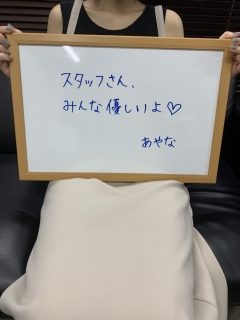 スタッフさん、
みんな優しいよ♡
あやな